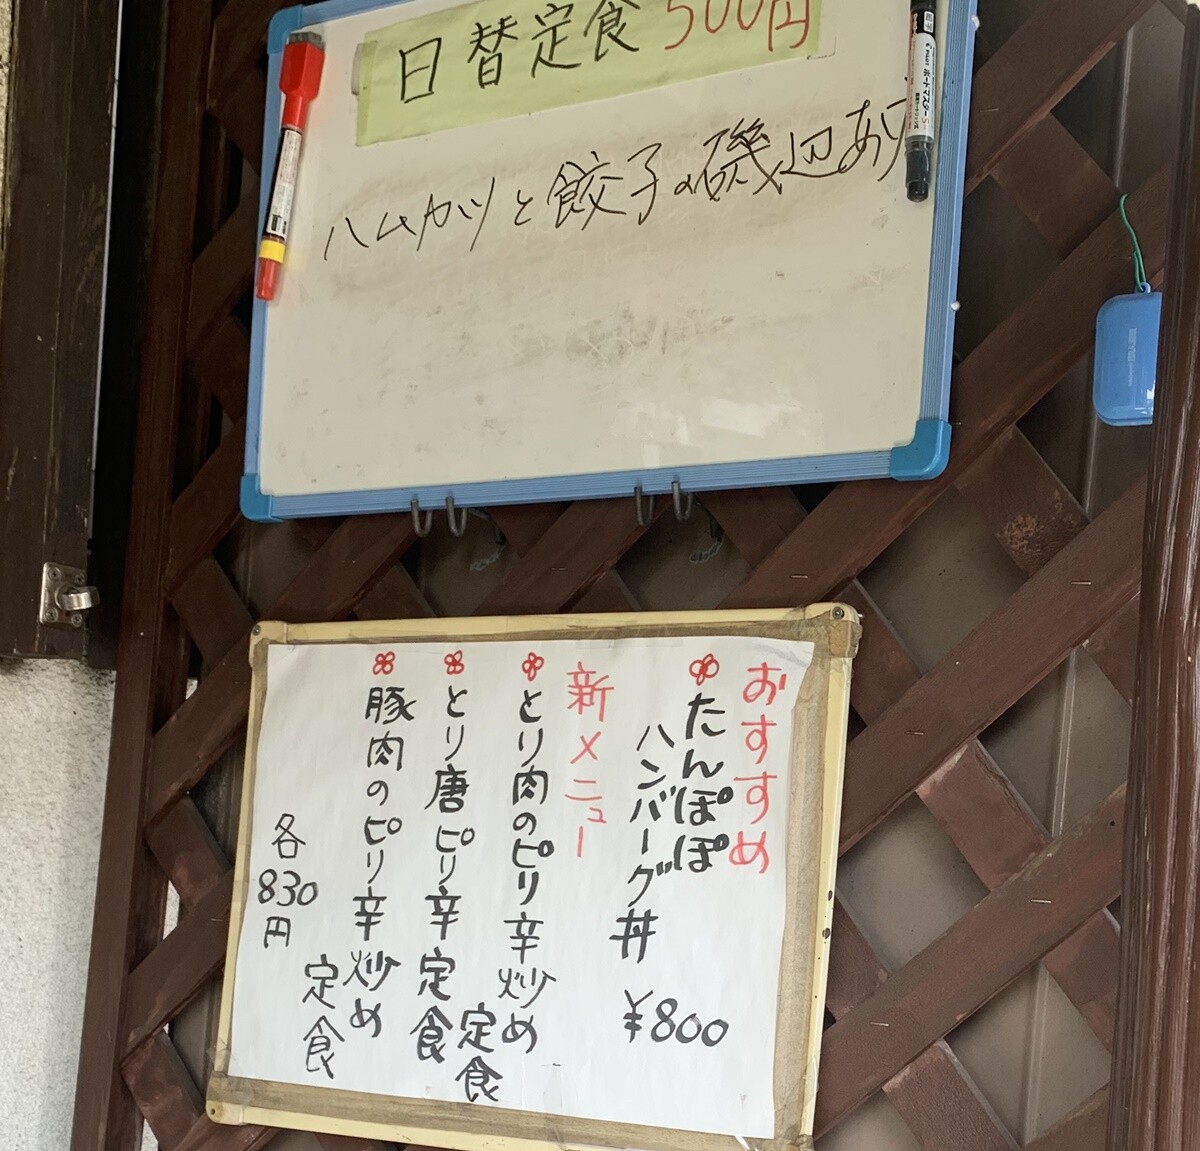 日替定食 500円
ハムカツと餃子の磯辺あり
ボードマスター
おすすめ
たんぽぽ
ハンバーグ丼 ¥800
新メニュー
とり肉のピリ辛炒め
定食
とり唐ピリ辛定食
豚肉のピリ辛炒め
定食
各830円